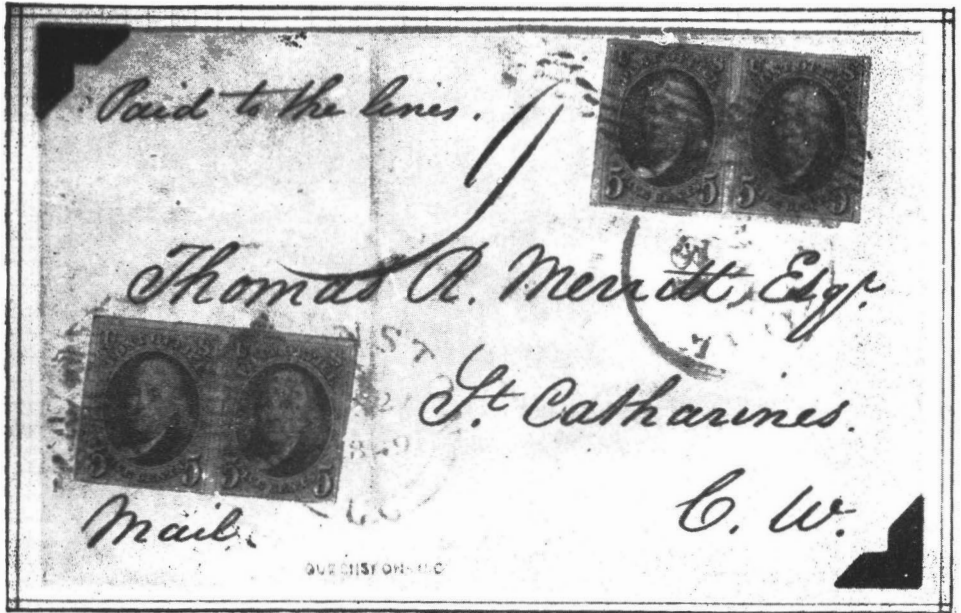 Paid to the lines.
5 5 5 5
Thomas R. Merritt, Esqr.
St Catharines.
5 5 5 5
C. W.
Mail.